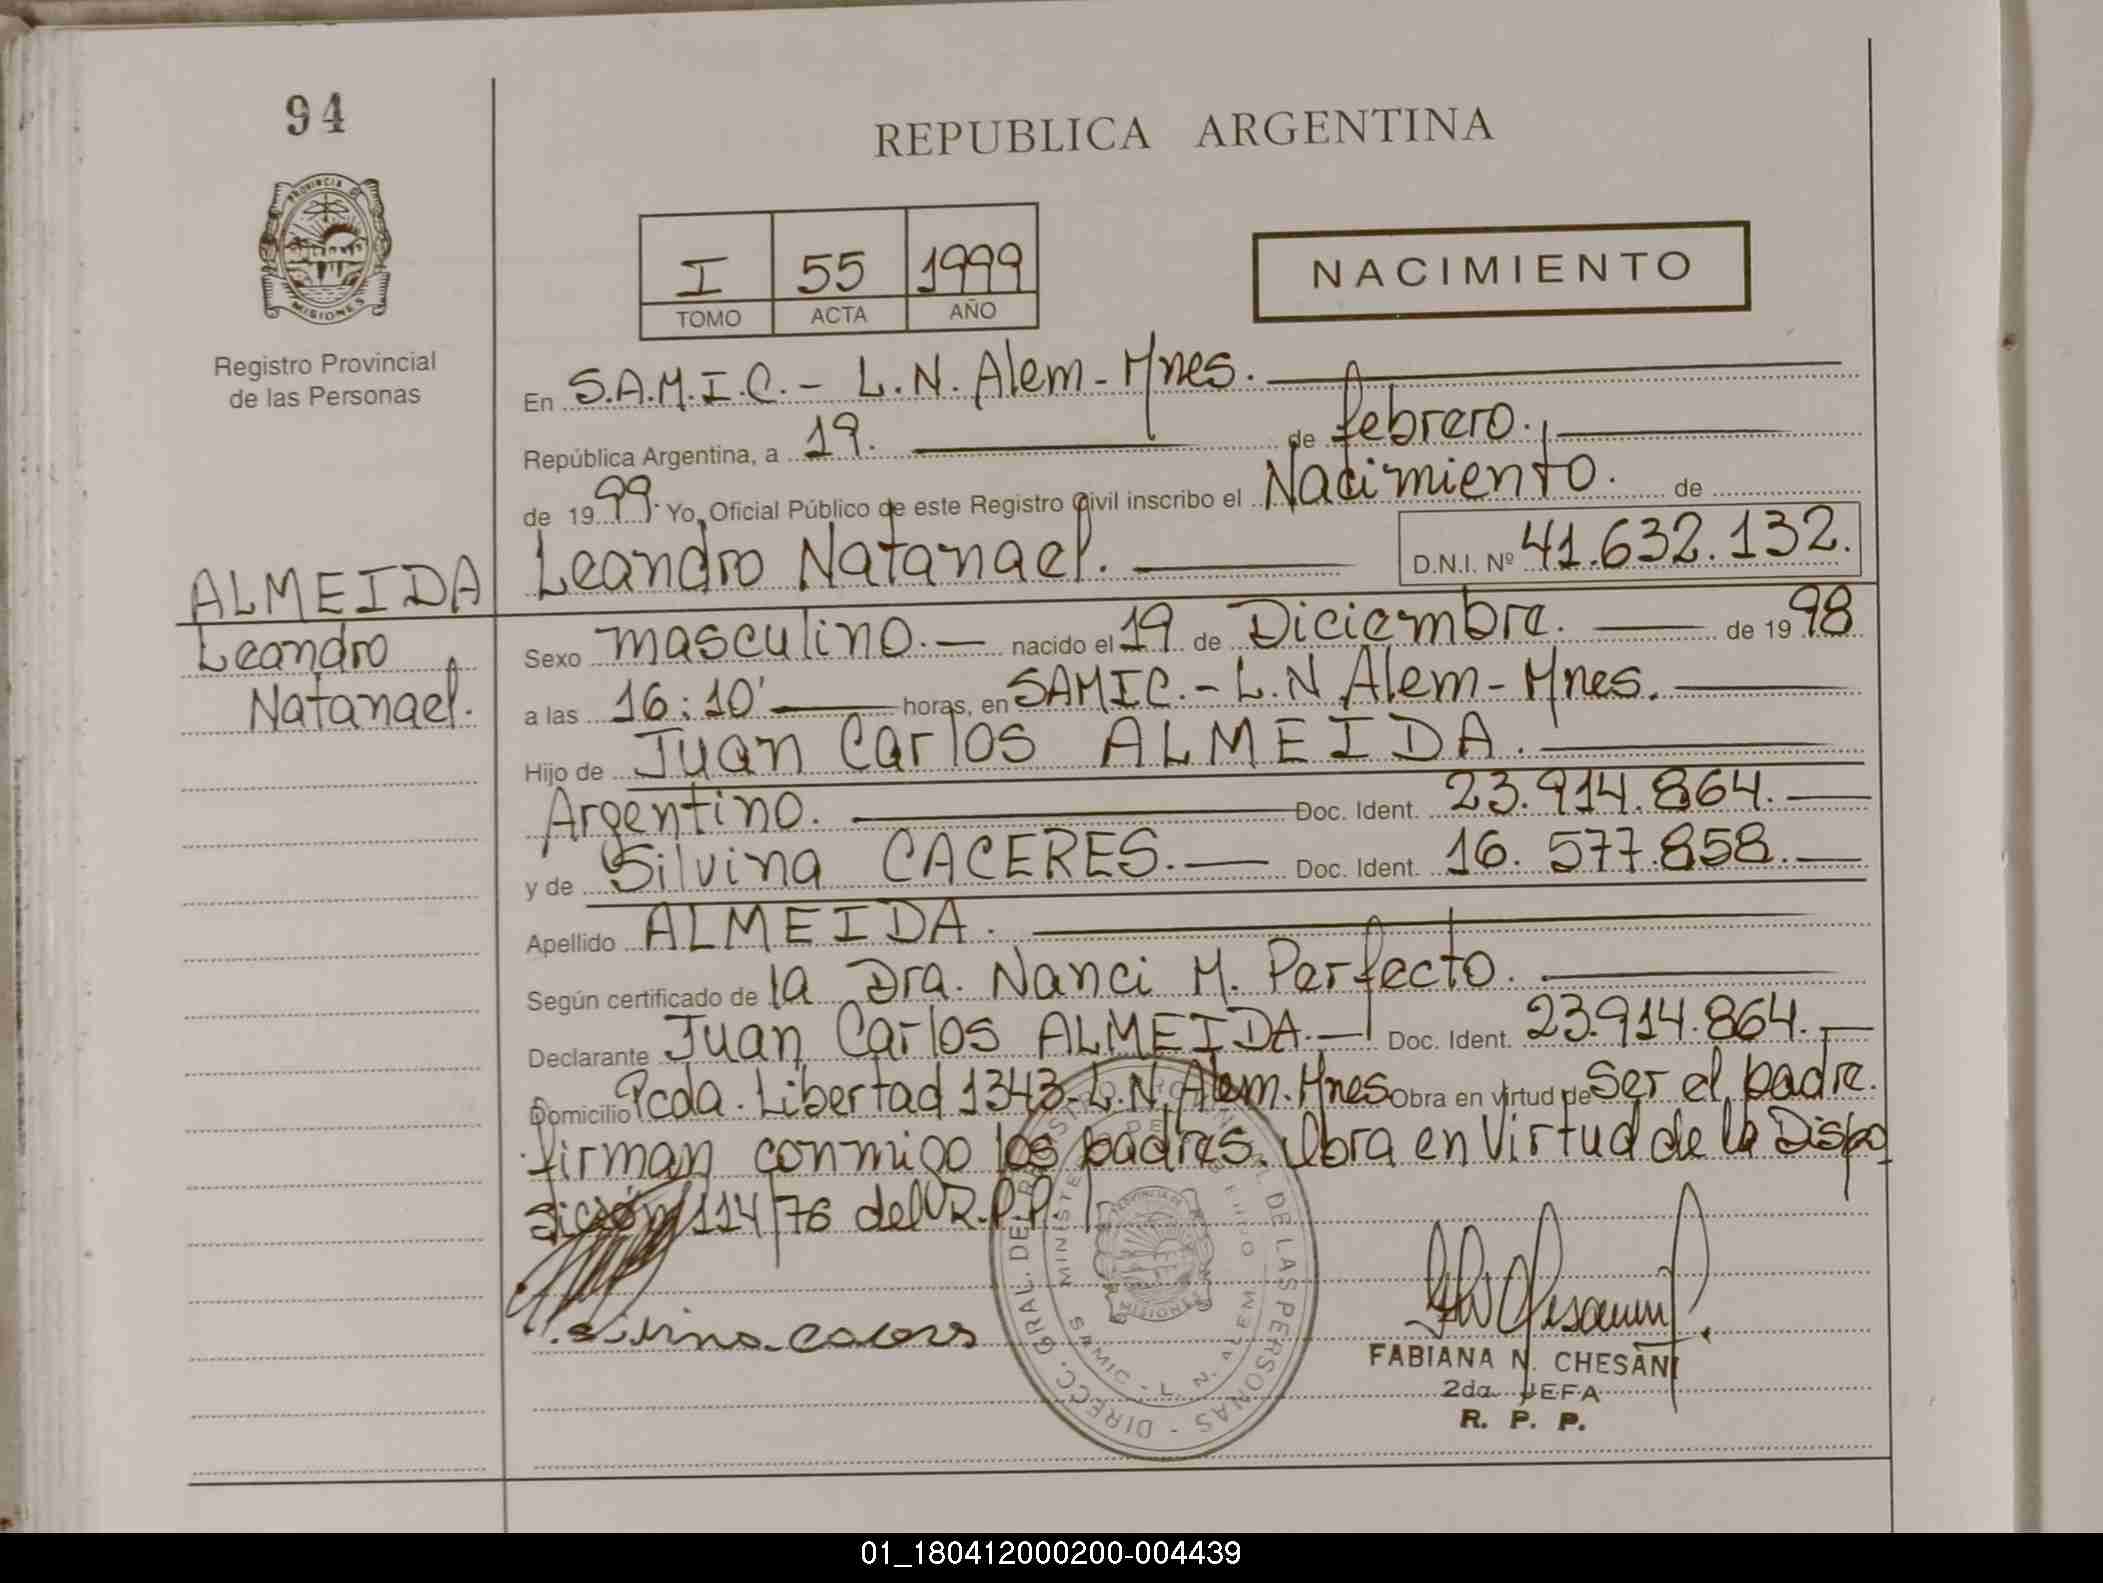 94
REPUBLICA ARGENTINA
PROVINCIA DE
MISIONES
Registro Provincial
de las Personas
I 55 1999
TOMO ACTA AÑO
NACIMIENTO
En S.A.M.I.C.- L.N. Alem - Mnes.
República Argentina, a 19. de febrero.
de 1999. Yo, Oficial Público de este Registro Civil inscribo el Nacimiento. de
Leandro Natanael. D.N.I. Nº 41.632.132.
ALMEIDA
Leandro
Natanael.
Sexo masculino.- nacido el 19 de Diciembre. de 1998
a las 16:10' horas, en SAMIC.- L.N Alem - Mnes.
Hijo de Juan Carlos ALMEIDA.
Argentino. Doc. Ident. 23.914.864.
y de Silvina CACERES. Doc. Ident. 16.577.858.
Apellido ALMEIDA.
Según certificado de la Dra. Nanci M. Perfecto.
Declarante Juan Carlos ALMEIDA.- Doc. Ident. 23.914.864.
Domicilio Pcda. Libertad 1343- L.N. Alem. Mnes Obra en virtud de ser el padre.
firman conmigo los padres. Obra en Virtud de la Dispo
sición 114/76 del R.P.P.
DIRECC. GRAL. DE REGISTRO PROVINCIAL DE LAS PERSONAS
SAMIC - L. N. ALEM
PROVINCIA DE
MISIONES
FABIANA N. CHESANI
2da. JEFA
R. P. P.
01_180412000200-004439